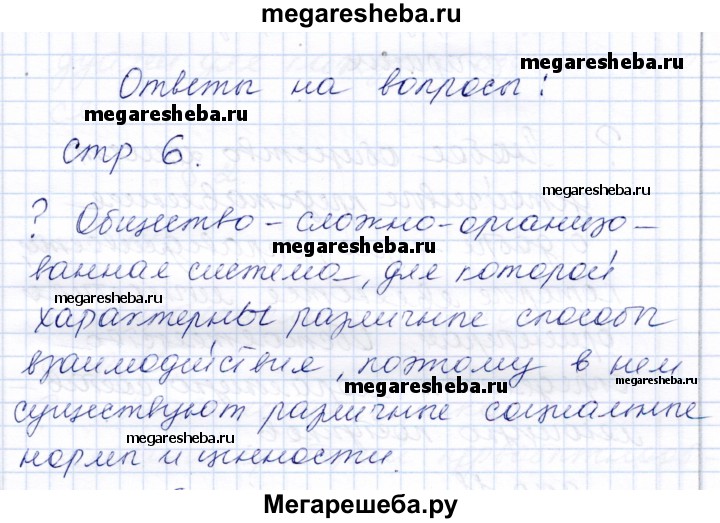 megaresheba.ru
megaresheba.ru
Ответы на вопросы:
megaresheba.ru
стр 6.
megaresheba.ru
? Общество – сложно-организо-
megaresheba.ru
ванная система, для которой
megaresheba.ru
характерны различные способы
megaresheba.ru
взаимодействия, поэтому в нем
megaresheba.ru
megaresheba.ru
существуют различные социальные
megaresheba.ru
нормы и ценности.
Мегарешеба.ру